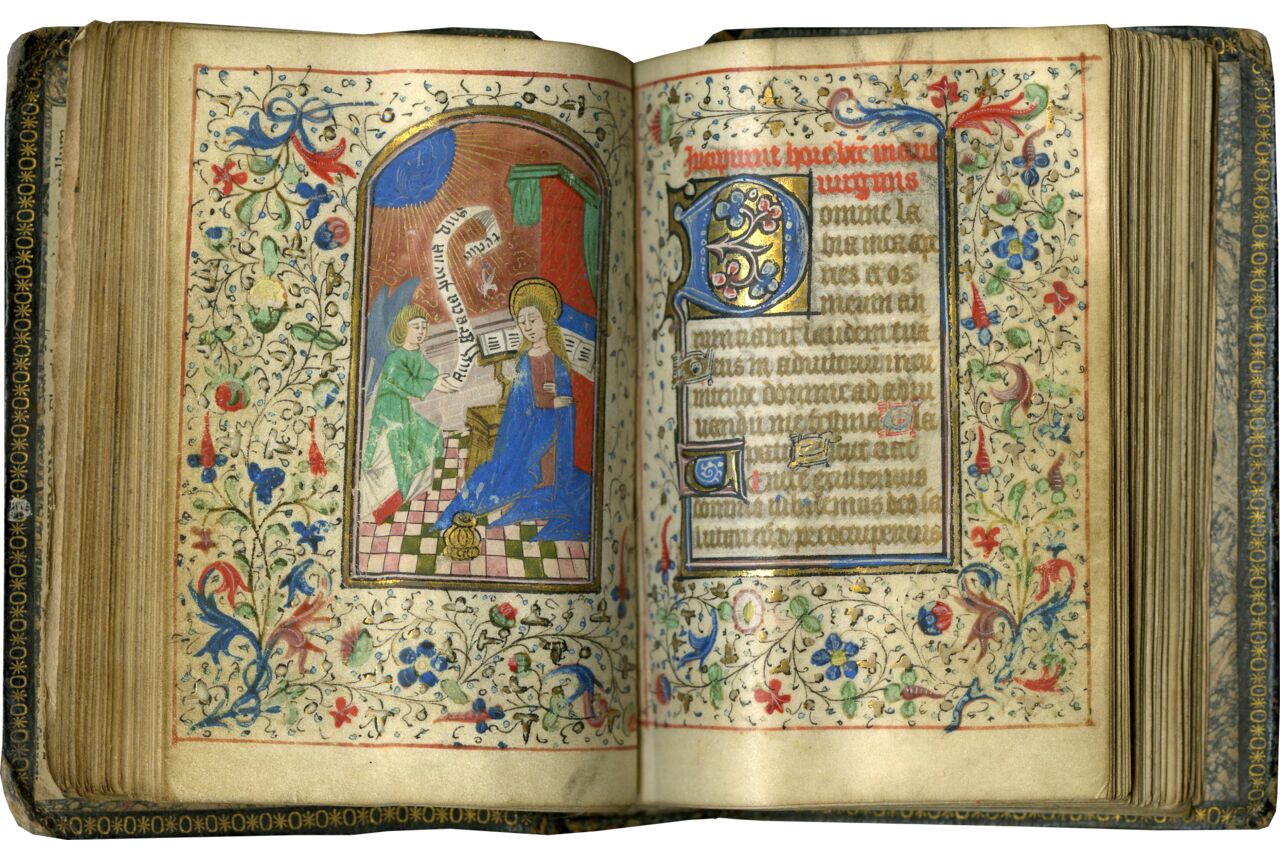 Aue gracia plena dns
tecu
Incipiunt hore bte marie
uirginis
Domine la
bia mea ape
ries et os
meum an
nunciabit laudem tua
Deus in adiutoriu meu
intende domine ad adiu
uandu me festina Gla
patri Sicut erat
Uenite exultemus
domino iubilemus deo sa
lutari preoccupemus